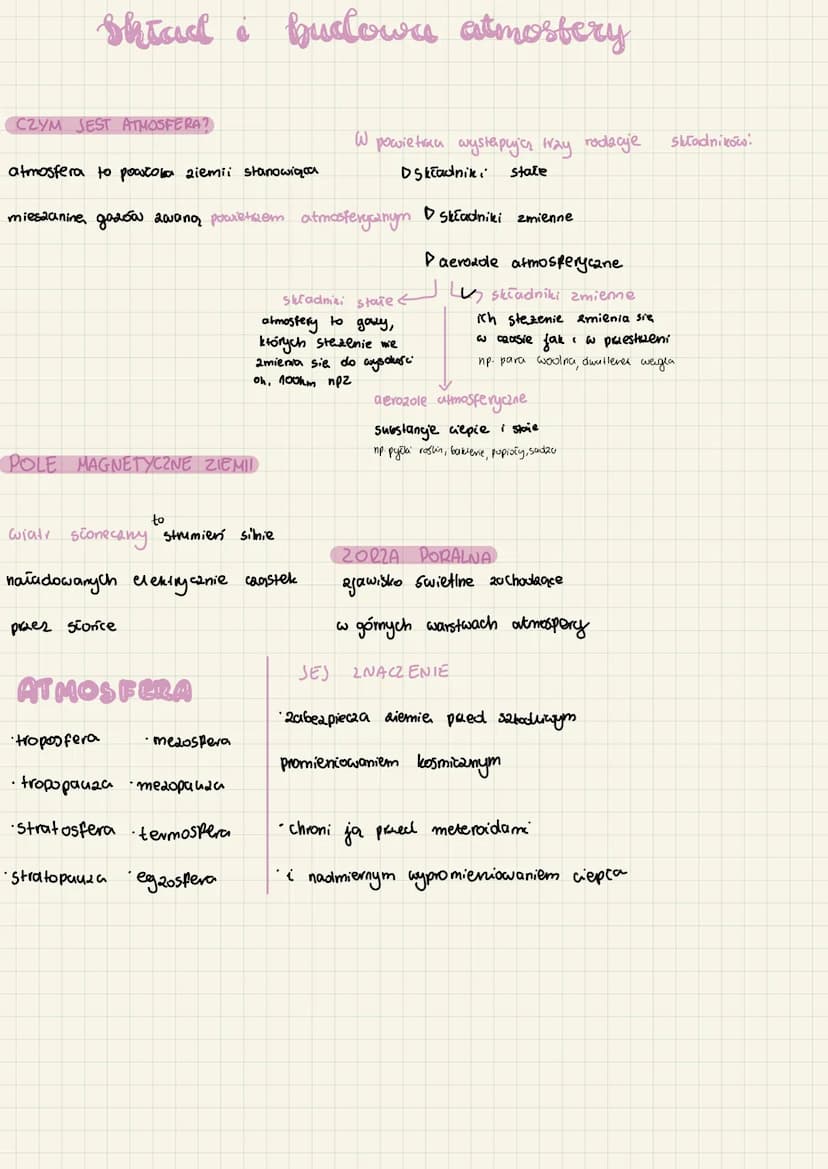 Skład i budowa atmosfery
CZYM JEST ATMOSFERA?
atmosfera to powłoka ziemii stanowiąca
mieszaninę gazów zwaną powietrzem atmosferycznym
W powietrzu występują trzy rodzaje składników:
▷ składniki stałe
▷ składniki zmienne
▷ aerozole atmosferyczne
składniki stałe
atmosfery to gazy,
których stężenie nie
zmienia się do wysokości
ok. 100km npz
składniki zmienne
ich stężenie zmienia się
w czasie jak i w przestrzeni
np. para wodna, dwutlenek węgla
aerozole atmosferyczne
substancje ciepłe i stałe
np. pyłki roślin, bakterie, popioły, sadza
POLE MAGNETYCZNE ZIEMII
wiatr słoneczny to strumień silnie
naładowanych elektrycznie cząstek
przez słońce
ZORZA PORALNA
zjawisko świetlne zachodzące
w górnych warstwach atmosfery
ATMOSFERA
· troposfera · mezosfera
· tropopauza · mezopauza
· stratosfera · termosfera
· stratopauza · egzosfera
JEJ ZNACZENIE
· zabezpiecza ziemię przed szkodliwym
promieniowaniem kosmicznym
· chroni ją przed meteroidami
· i nadmiernym wypromieniowaniem ciepła